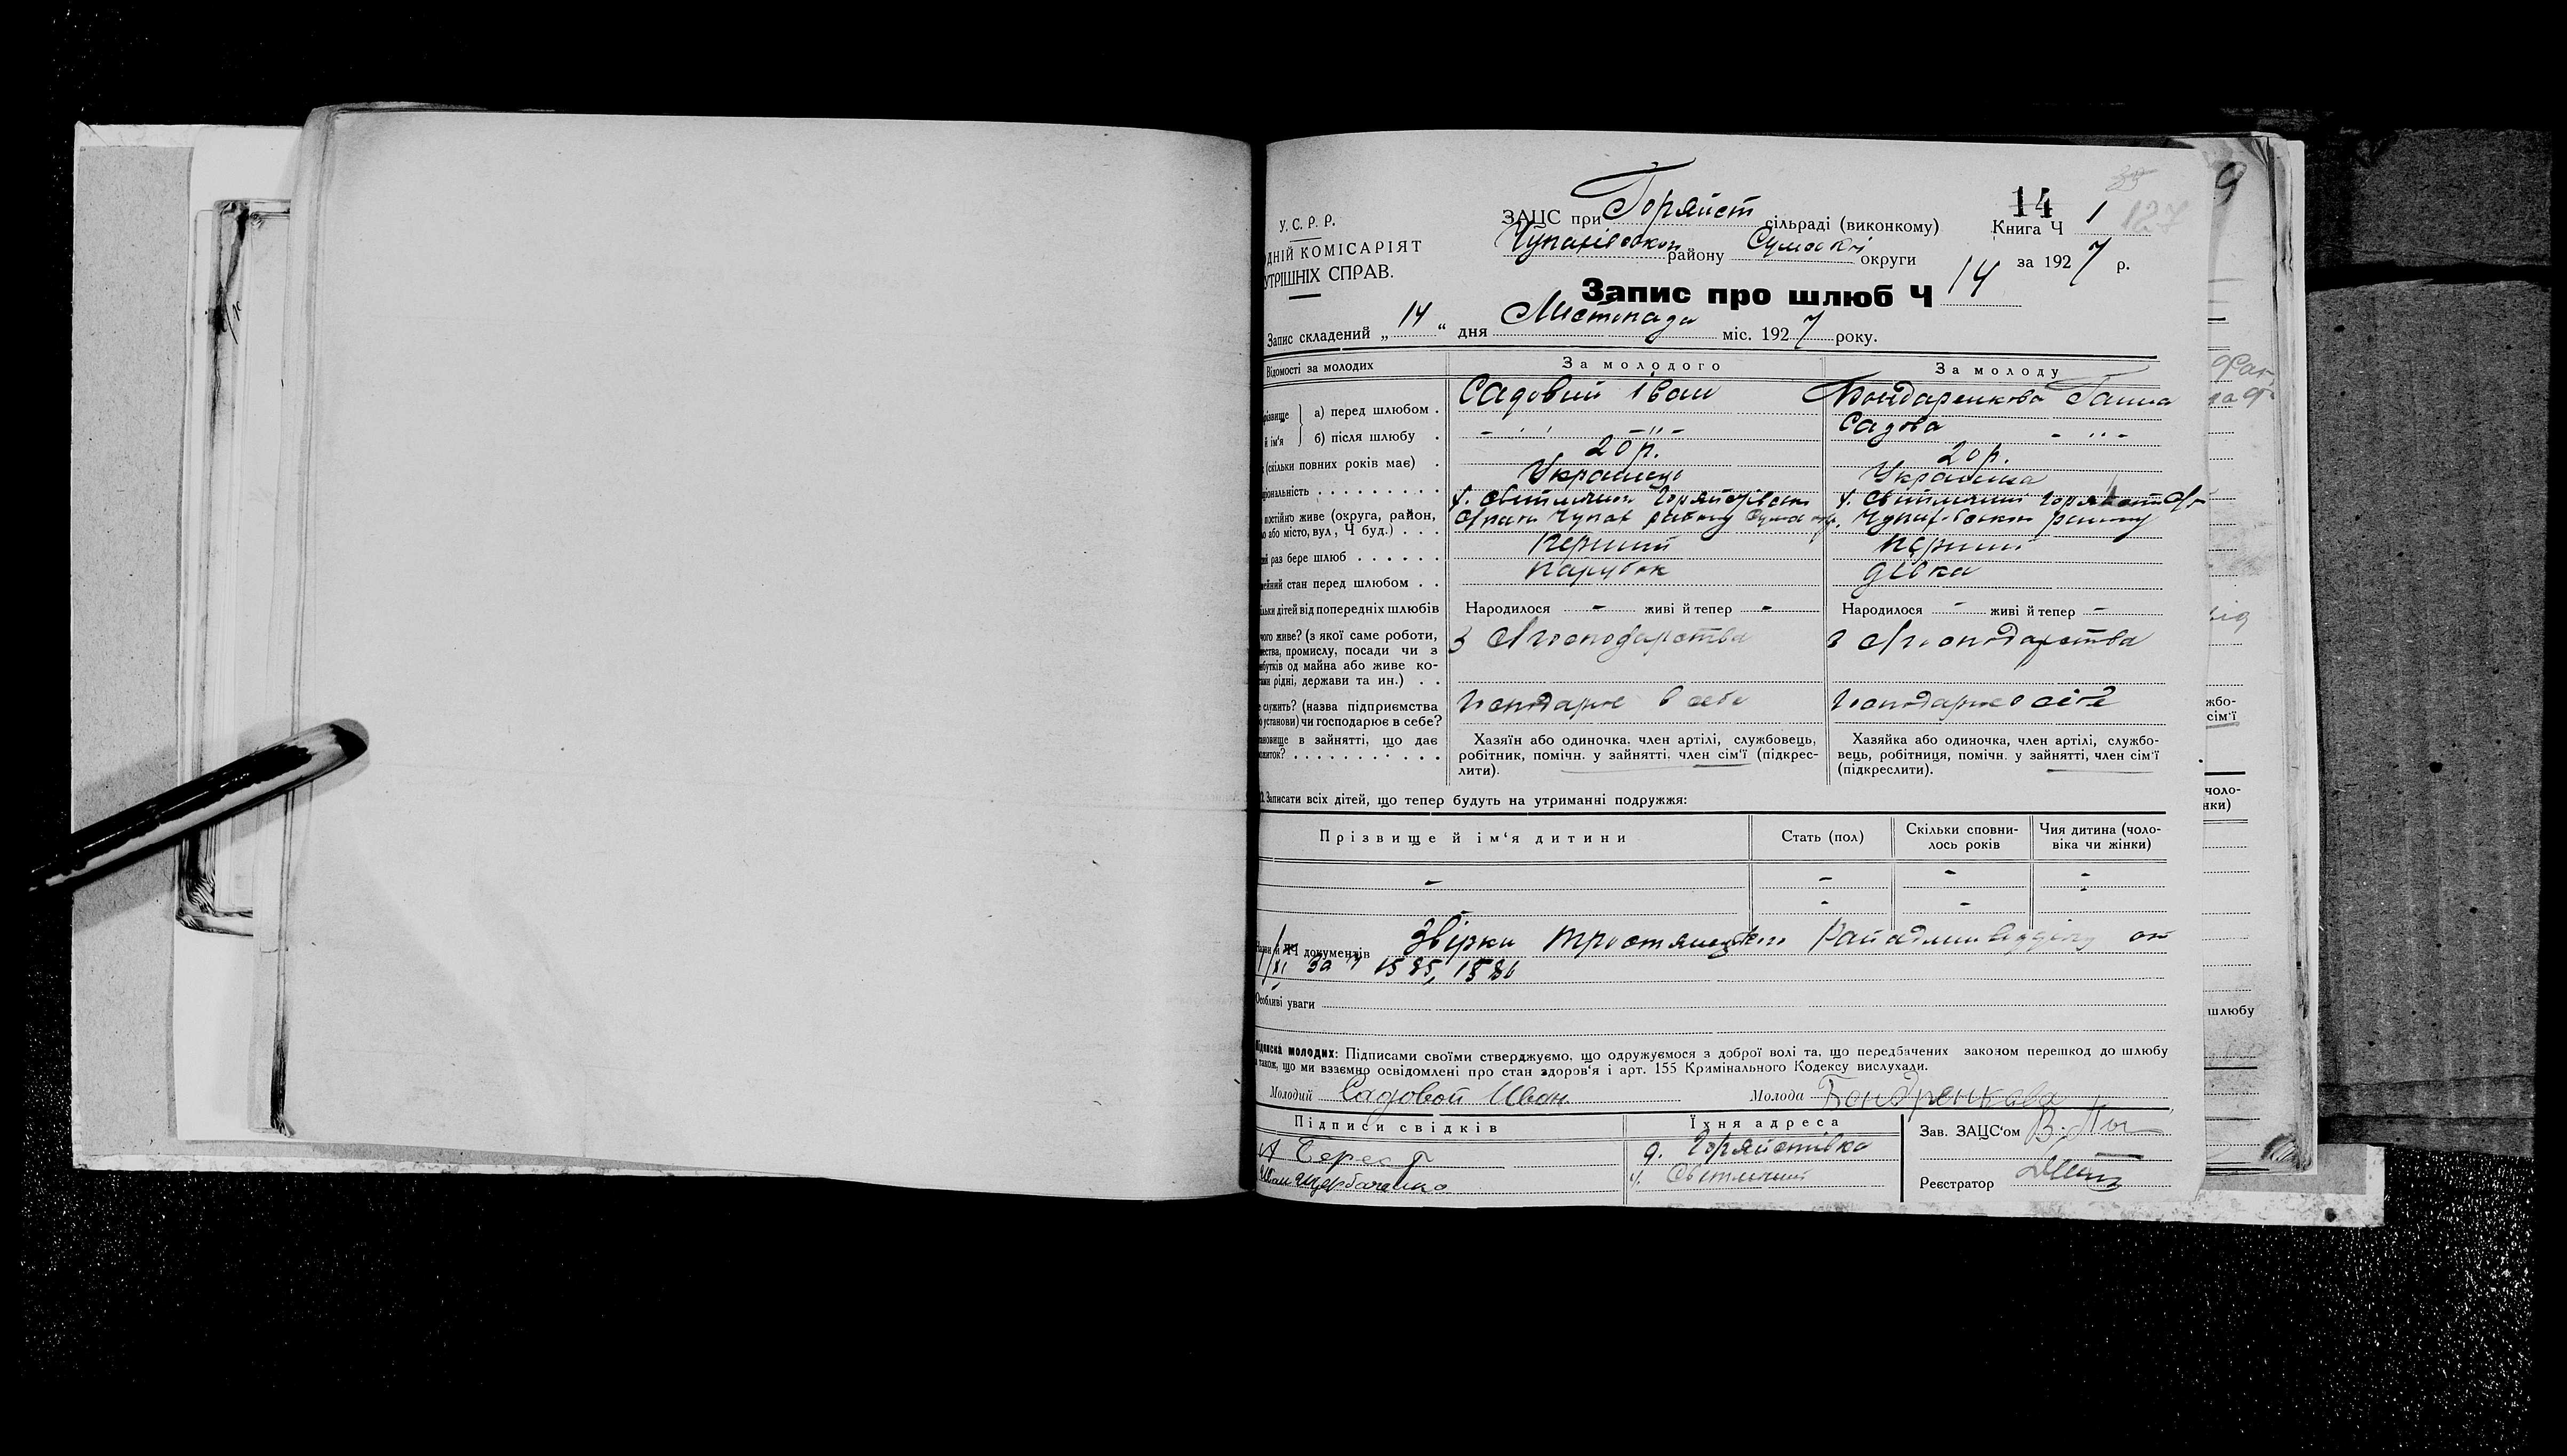 35
14
У. С. Р. Р.
ЗАЦС при Горяйст сільраді (виконкому)
Книга Ч 1 127
ДНІЙ КОМІСАРІЯТ
района Сумської округи
УТРІШНІХ СПРАВ.
за 1927 р.
Запис про шлюб Ч 14
Запис складений „ 14 “ дня Листопада міс. 1927 року.
Відомості за молодих
За молодого
За молоду
різвище й ім'я
а) перед шлюбом . Садовий Іван
Бондаренкова Ганна
б) після шлюбу . - ,, - - ,, -
Садова - ,, -
(скільки повних років має) . 20 р.
20 р.
ціональність . . . . . . . . . Українець
Українка
постійно живе (округа, район,
о або місто, вул, Ч буд.) . . .
х. Світличний
Чупах району
х. Світличний
району
ий раз бере шлюб . . . . . . Перший
Перший
ейний стан перед шлюбом . . парубок
дівка
ільки дітей від попередніх шлюбів
Народилося - живі й тепер -
Народилося - живі й тепер -
чого живе? (з якої саме роботи,
ества, промислу, посади чи з
ибутків од майна або живе ко-
ами рідні, держави та ин.) . .
з с/господарства
з с/господарства
е служить? (назва підприємства
о установи) чи господарює в себе?
Господарює в себе
Господарює в себе
ановище в зайнятті, що дає
ожиток? . . . . . . . . . . .
Хазяїн або одиночка, член артілі, службовець,
робітник, помічн. у зайнятті, член сім'ї (підкрес-
лити).
Хазяйка або одиночка, член артілі, службо-
вець, робітниця, помічн. у зайнятті, член сім'ї
(підкреслити).
Записати всіх дітей, що тепер будуть на утриманні подружжя:
Прізвище й ім'я дитини
Стать (пол)
Скільки сповни-
лось років
Чия дитина (чоло-
віка чи жінки)
- - - -
- - -
Назви й ЧЧ документів Звірки Тростянецького Райадмінвідділу от
/XI за Ч 1585, 1586
Особливі уваги
Підписка молодих: Підписами своїми стверджуємо, що одружуємося з доброї волі та, що передбачених законом перешкод до шлюбу
також, що ми взаємно освідомлені про стан здоров'я і арт. 155 Кримінального Кодексу вислухали.
Молодий Садовой Иван
Молода Бондренкова
Підписи свідків
Їхня адреса
Зав. ЗАЦС'ом
д. Горяйстівка
Іван Щербаченко
х. Світличний
Реєстратор
9
жбо-
сім'ї
чоло-
нки)
шлюбу